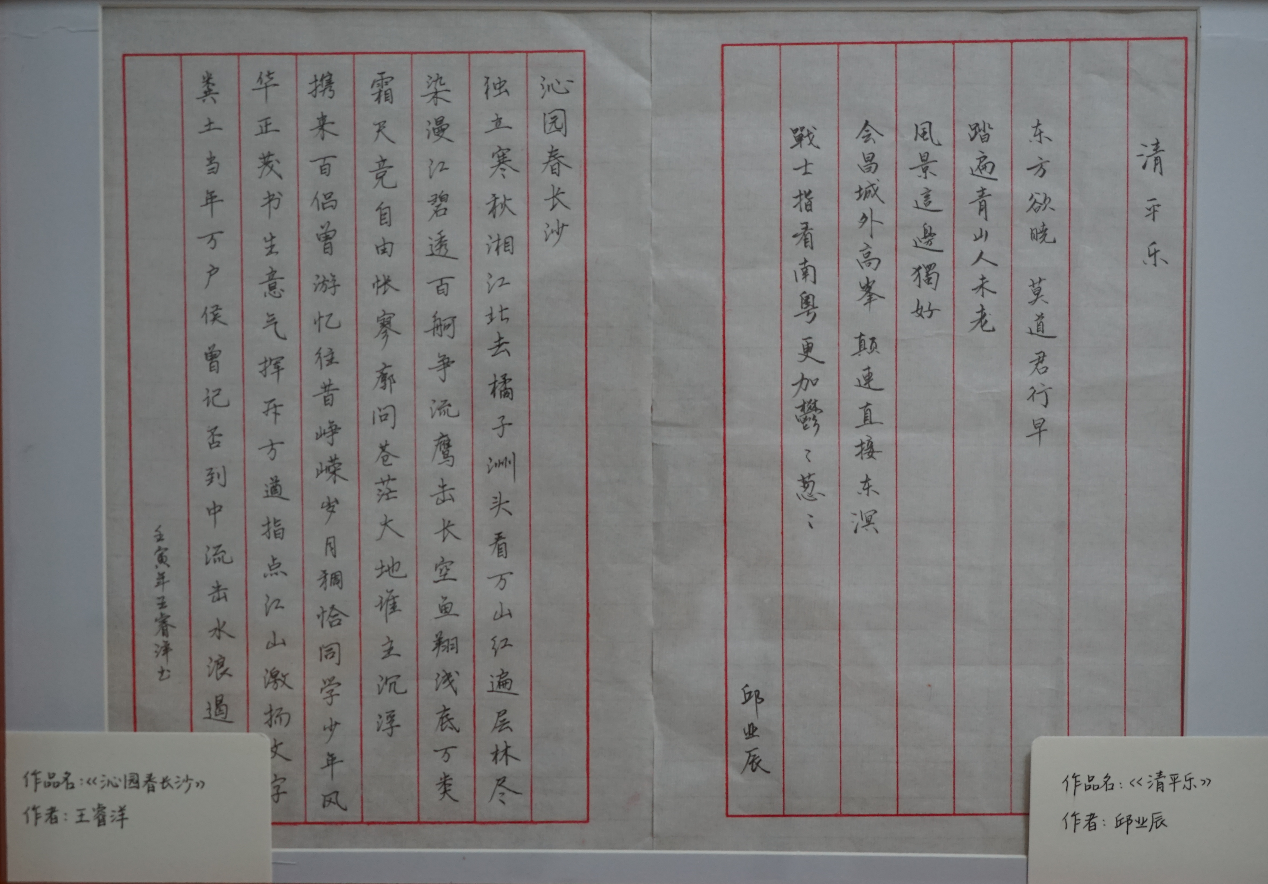 清平乐
东方欲晓 莫道君行早
踏遍青山人未老
風景這邊獨好
会昌城外高峯 颠连直接东溟
戰士指看南粤更加鬱〻葱〻
邱业辰
沁园春长沙
独立寒秋湘江北去橘子洲头看万山红遍层林尽
染漫江碧透百舸争流鹰击长空鱼翔浅底万类
霜天竞自由怅寥廓问苍茫大地谁主沉浮
携来百侣曾游忆往昔峥嵘岁月稠恰同学少年风
华正茂书生意气挥斥方遒指点江山激扬文字
粪土当年万户侯曾记否到中流击水浪遏
壬寅年王睿洋书
作品名:《沁园春长沙》
作者:王睿洋
作品名:《清平乐》
作者:邱业辰